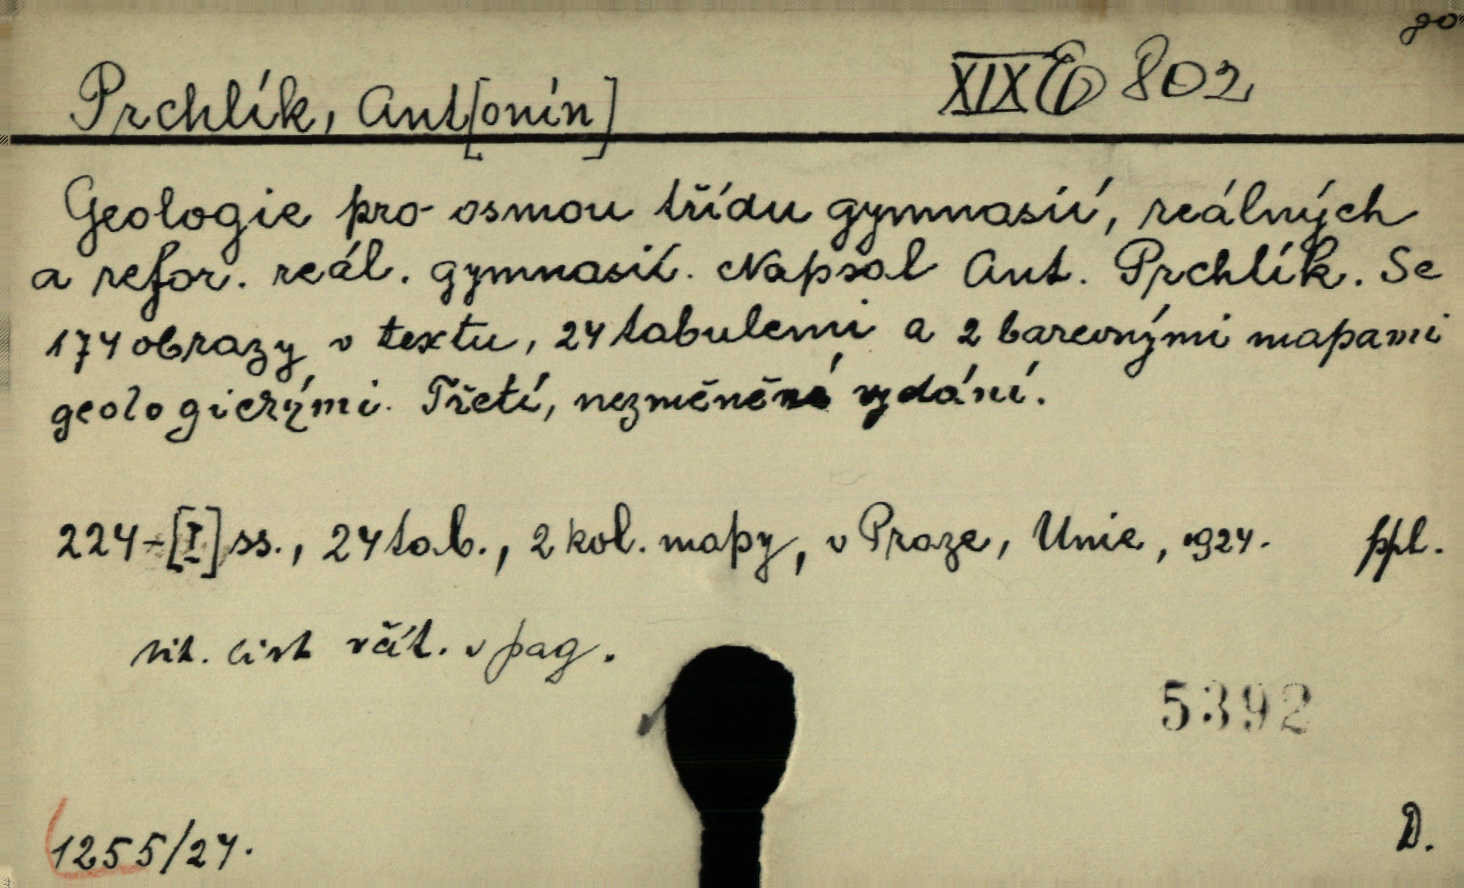 go
Prchlík, Ant[onín]
XIX E 802
Geologie pro osmou třídu gymnasií, reálných
a refor. reál. gymnasií. Napsal Ant. Prchlík. Se
174 obrazy v textu, 24 tabulemi a 2 barevnými mapami
geologickými. Třetí, nezměněné vydání.
224-[I] ss., 24 tab., 2 kol. mapy, v Praze, Unie, 1924. ppl.
tit. list včít. v pag.
5392
1255/24.
D.